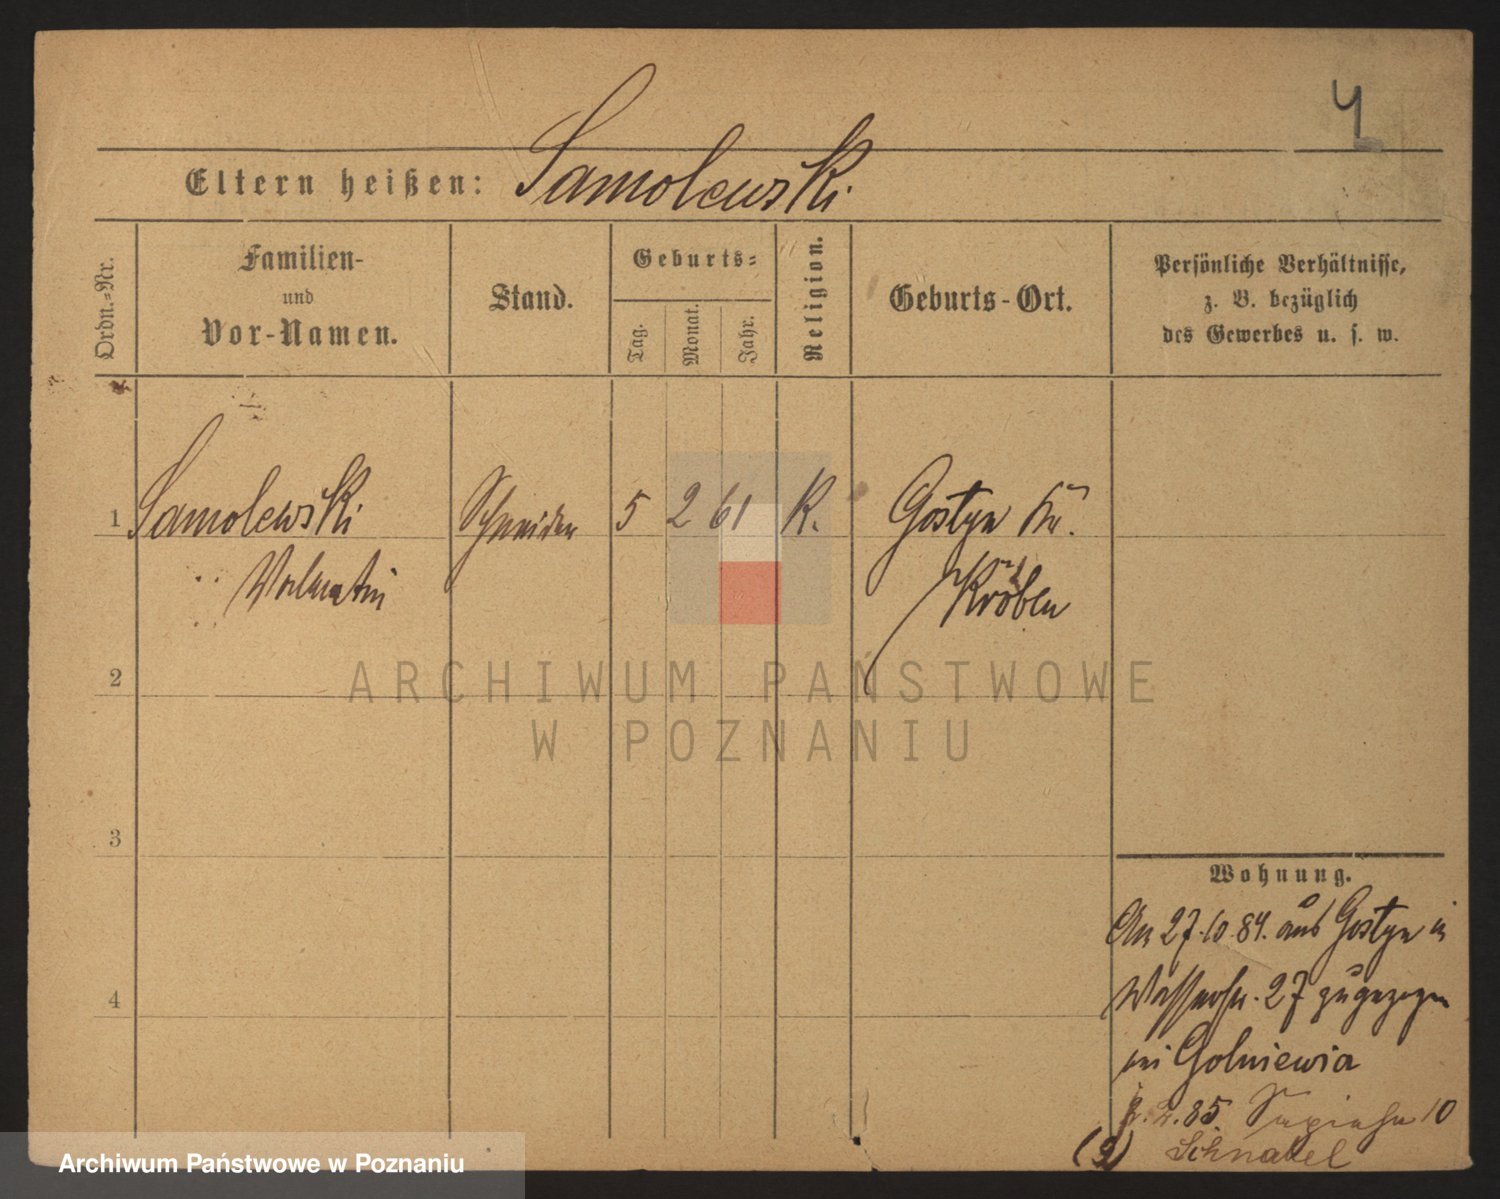 4
Eltern heißen: Samolewski
Ordn.=Nr.
Familien-
und
Vor-Namen.
Stand.
Geburts=
Tag.
Monat.
Jahr.
Religion.
Geburts-Ort.
Persönliche Verhältnisse,
z. B. bezüglich
des Gewerbes u. s. w.
1 Samolewski Schneider 5 2 61 K. Gostyn Kr.
Valentin Kröben
2
3
4
ARCHIWUM PAŃSTWOWE
W POZNANIU
Wohnung.
An 27.10.84. aus Gostyn in
Wasserstr. 27 zugezogen
bei Golniewia
2.85 10
(9) Schnabel
Archiwum Państwowe w Poznaniu